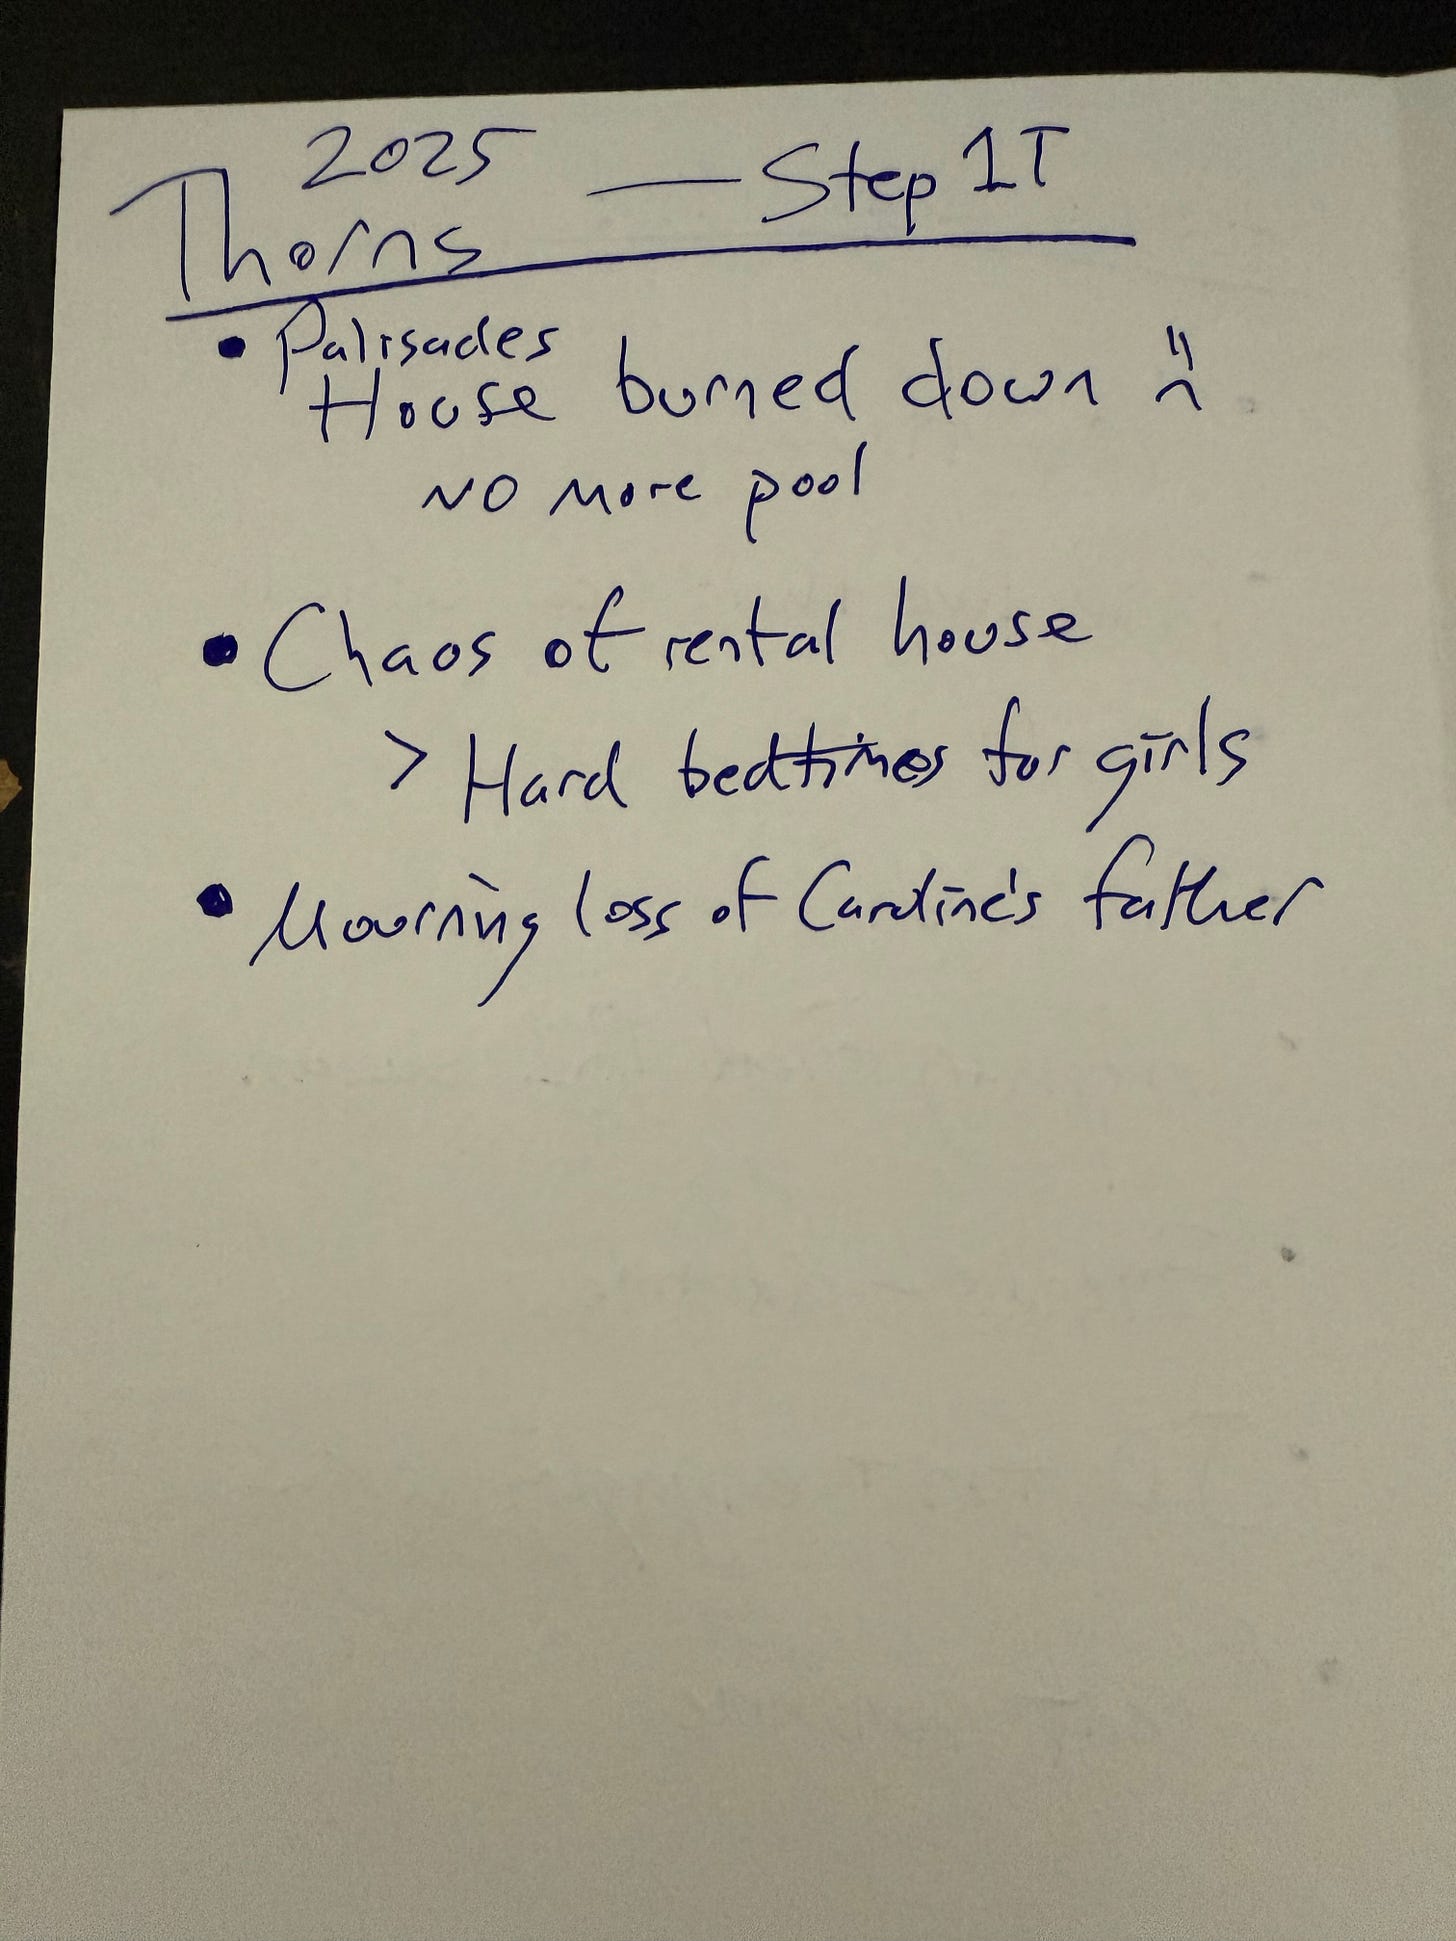 2025
Thorns — Step 1T
• Palisades
House burned down :(
NO More pool
• Chaos of rental house
> Hard bedtimes for girls
• Mourning loss of Caroline's father